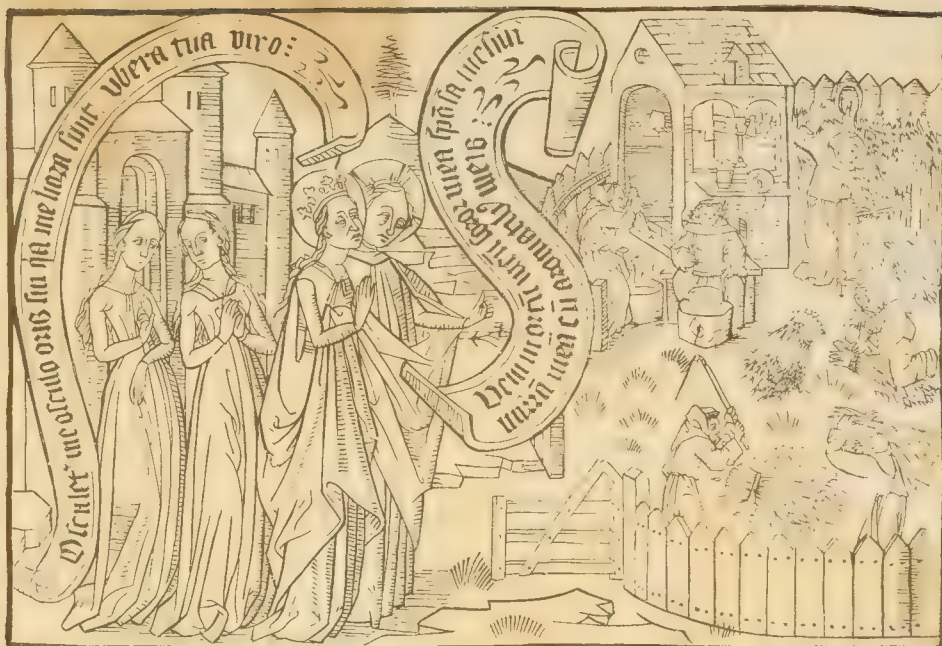 Osculet me osculo oris sui q̄a meliora sunt vbera tua vino:
Veni in ortū meū soror mea spōsa messui
meā cū aromatibꝰ meis: